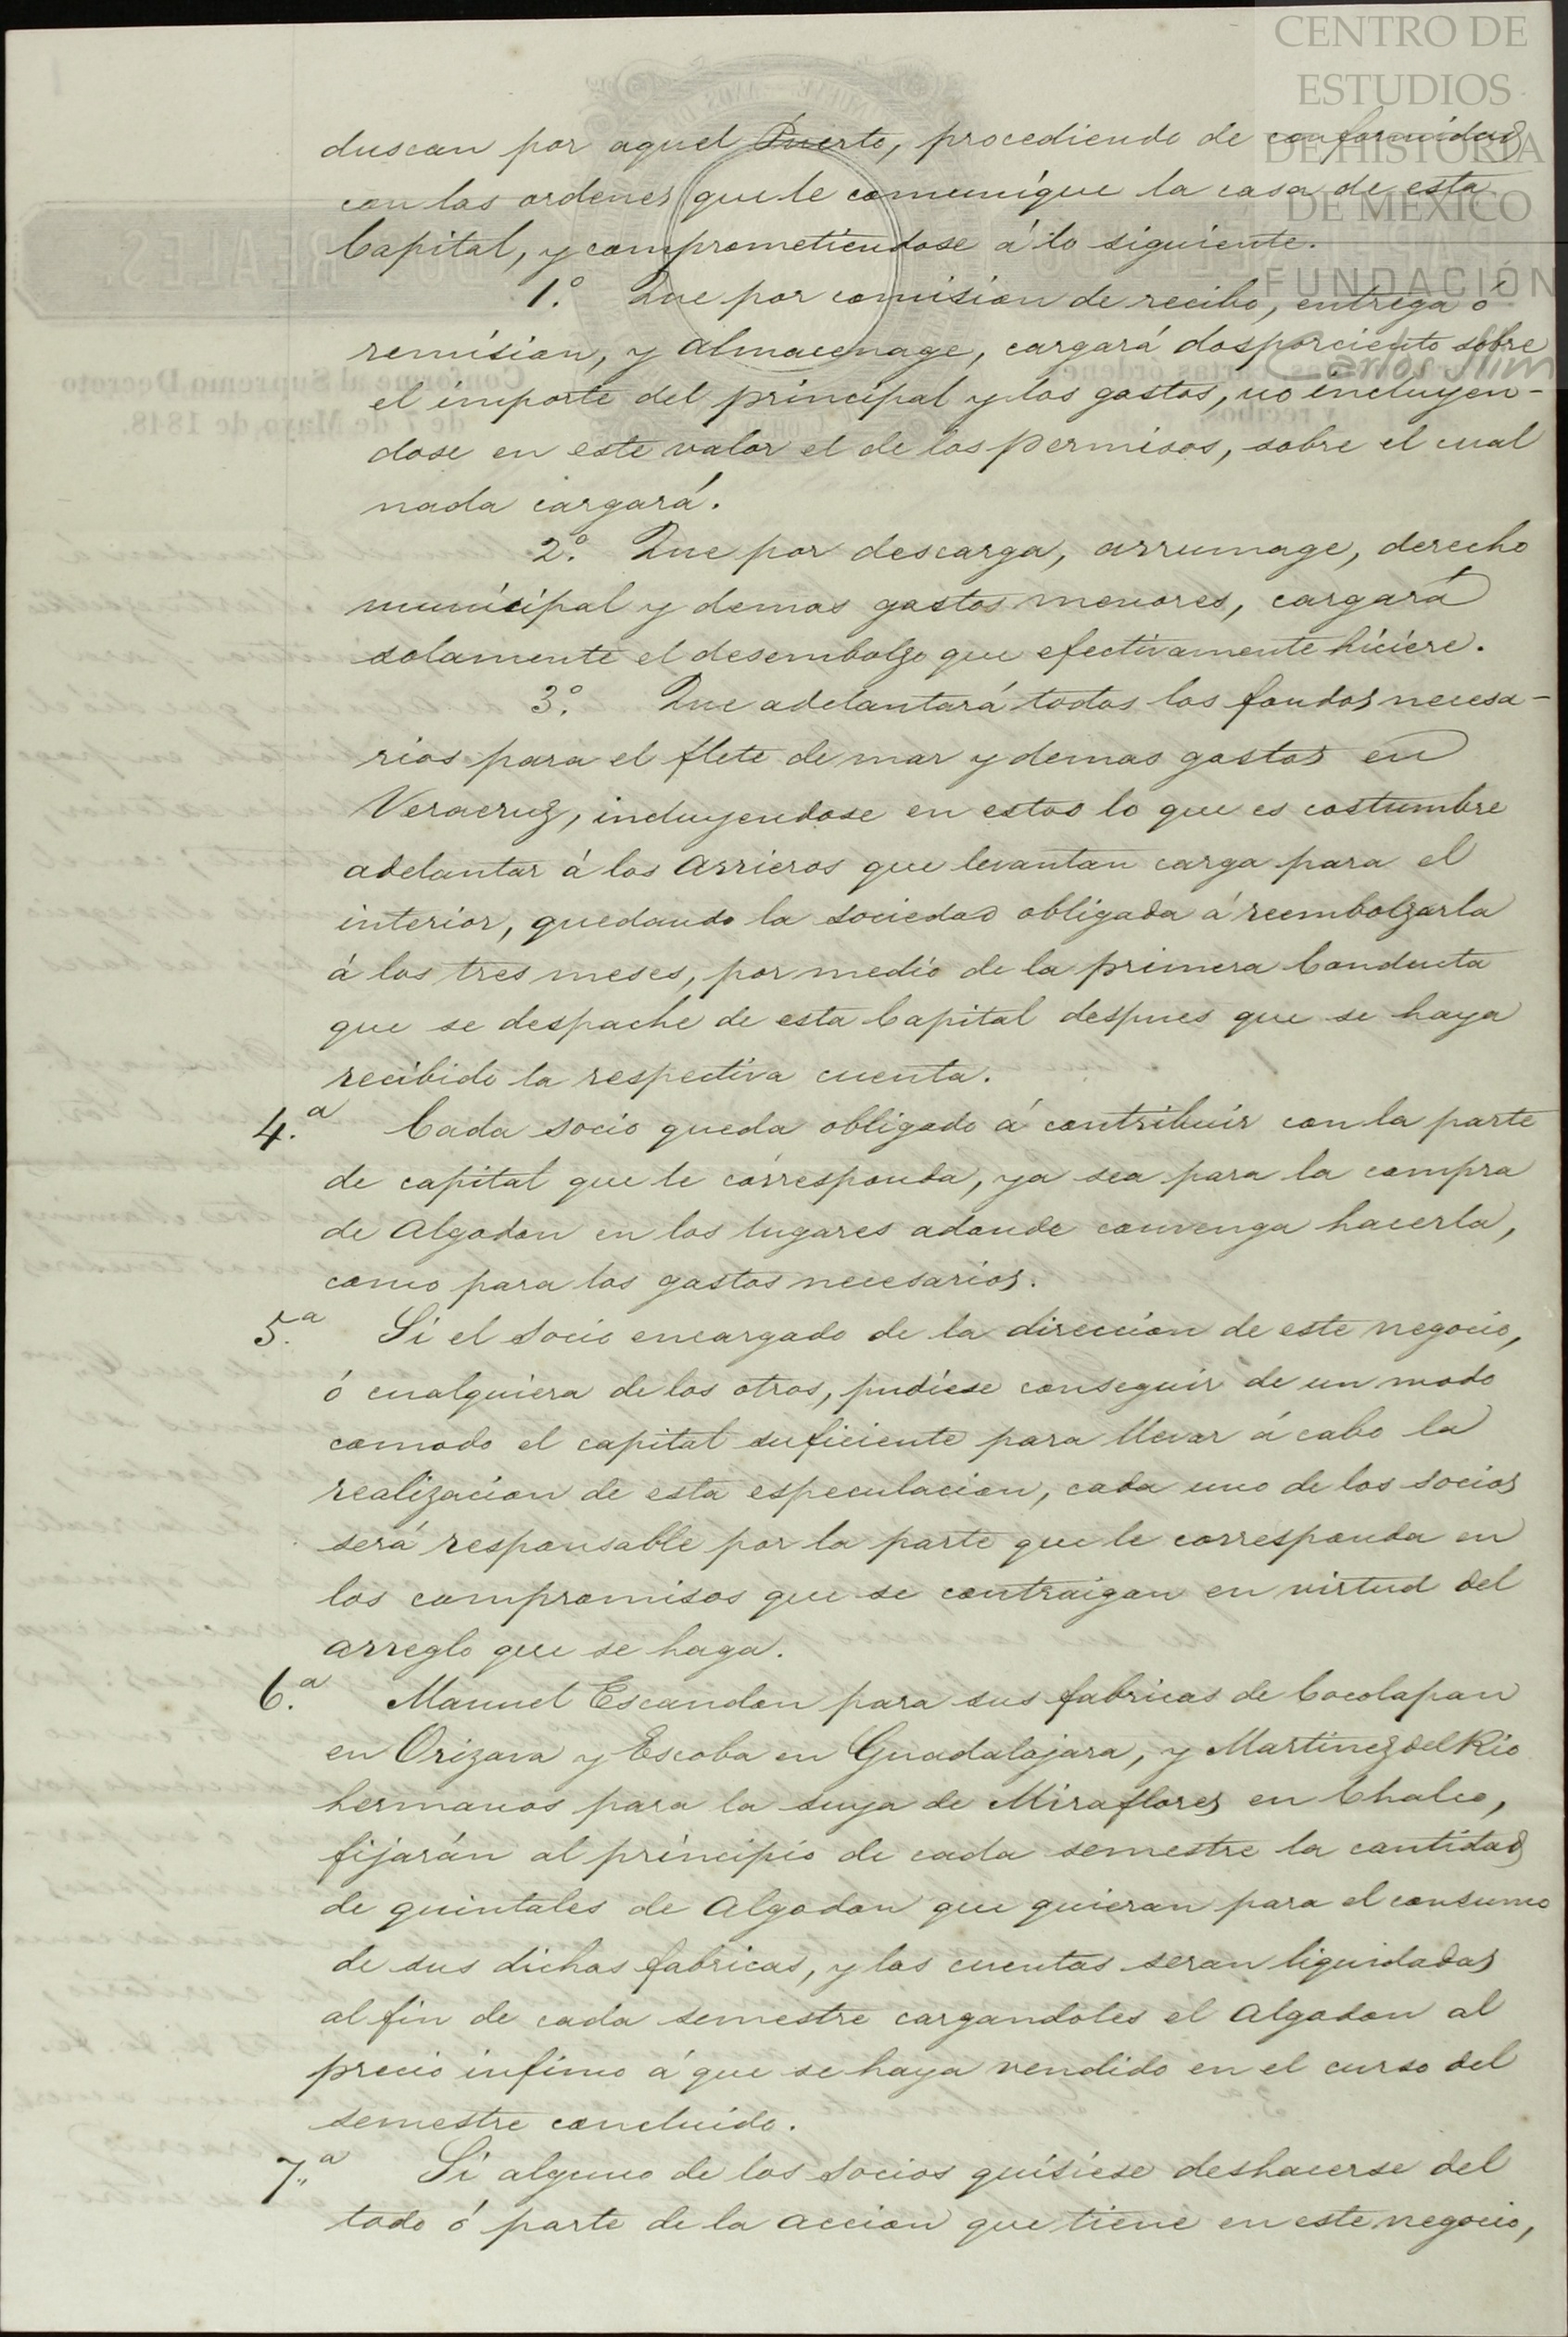 CENTRO DE
ESTUDIOS
DE HISTORIA
DE MÉXICO
FUNDACIÓN
Carlos Slim
duscan por aquel Puerto, procediendo de conformidad
con las ordenes que le comunique la casa de esta
Capital, y comprometiendose á lo siguiente.
1.º Que por comision de recibo, entrega ó
remision, y almacenage, cargará dos por ciento sobre
el importe del principal y los gastos, no incluyen-
dose en este valor el de los permisos, sobre el cual
nada cargará.
2.º Que por descarga, arrumage, derecho
municipal y demas gastos menores, cargará
solamente el desembolzo que efectivamente hiciere.
3.º Que adelantará todos los fondos necesa-
rios para el flete de mar y demas gastos en
Veracruz, incluyendose en estos lo que es costumbre
adelantar á los arrieros que levantan carga para el
interior, quedando la sociedad obligada á reembolzarla
á los tres meses, por medio de la primera Conducta
que se despache de esta Capital despues que se haya
recibido la respectiva cuenta.
4.ª Cada socio queda obligado á contribuir con la parte
de capital que le corresponda, ya sea para la compra
de algodon en los lugares adonde convenga hacerla,
como para los gastos necesarios.
5.ª Si el socio encargado de la direccion de este negocio,
ó cualquiera de los otros, pudiese conseguir de un modo
comodo el capital suficiente para llevar á cabo la
realizacion de esta especulacion, cada uno de los socios
será responsable por la parte que le corresponda en
los compromisos que se contraigan en virtud del
arreglo que se haga.
6.ª Manuel Escandon para sus fabricas de Cocolapan
en Orizava y Escoba en Guadalajara, y Martinez del Rio
hermanos para la suya de Miraflores en Chalco,
fijarán al principio de cada semestre la cantidad
de quintales de algodon que quieran para el consumo
de sus dichas fabricas, y las cuentas seran liquidadas
al fin de cada semestre cargandoles el algodon al
precio infimo á que se haya vendido en el curso del
semestre concluido.
7.ª Si alguno de los socios quisiese deshacerse del
todo ó parte de la accion que tiene en este negocio,
Conforme al Supremo Decreto
de 7 de Mayo de 1848.